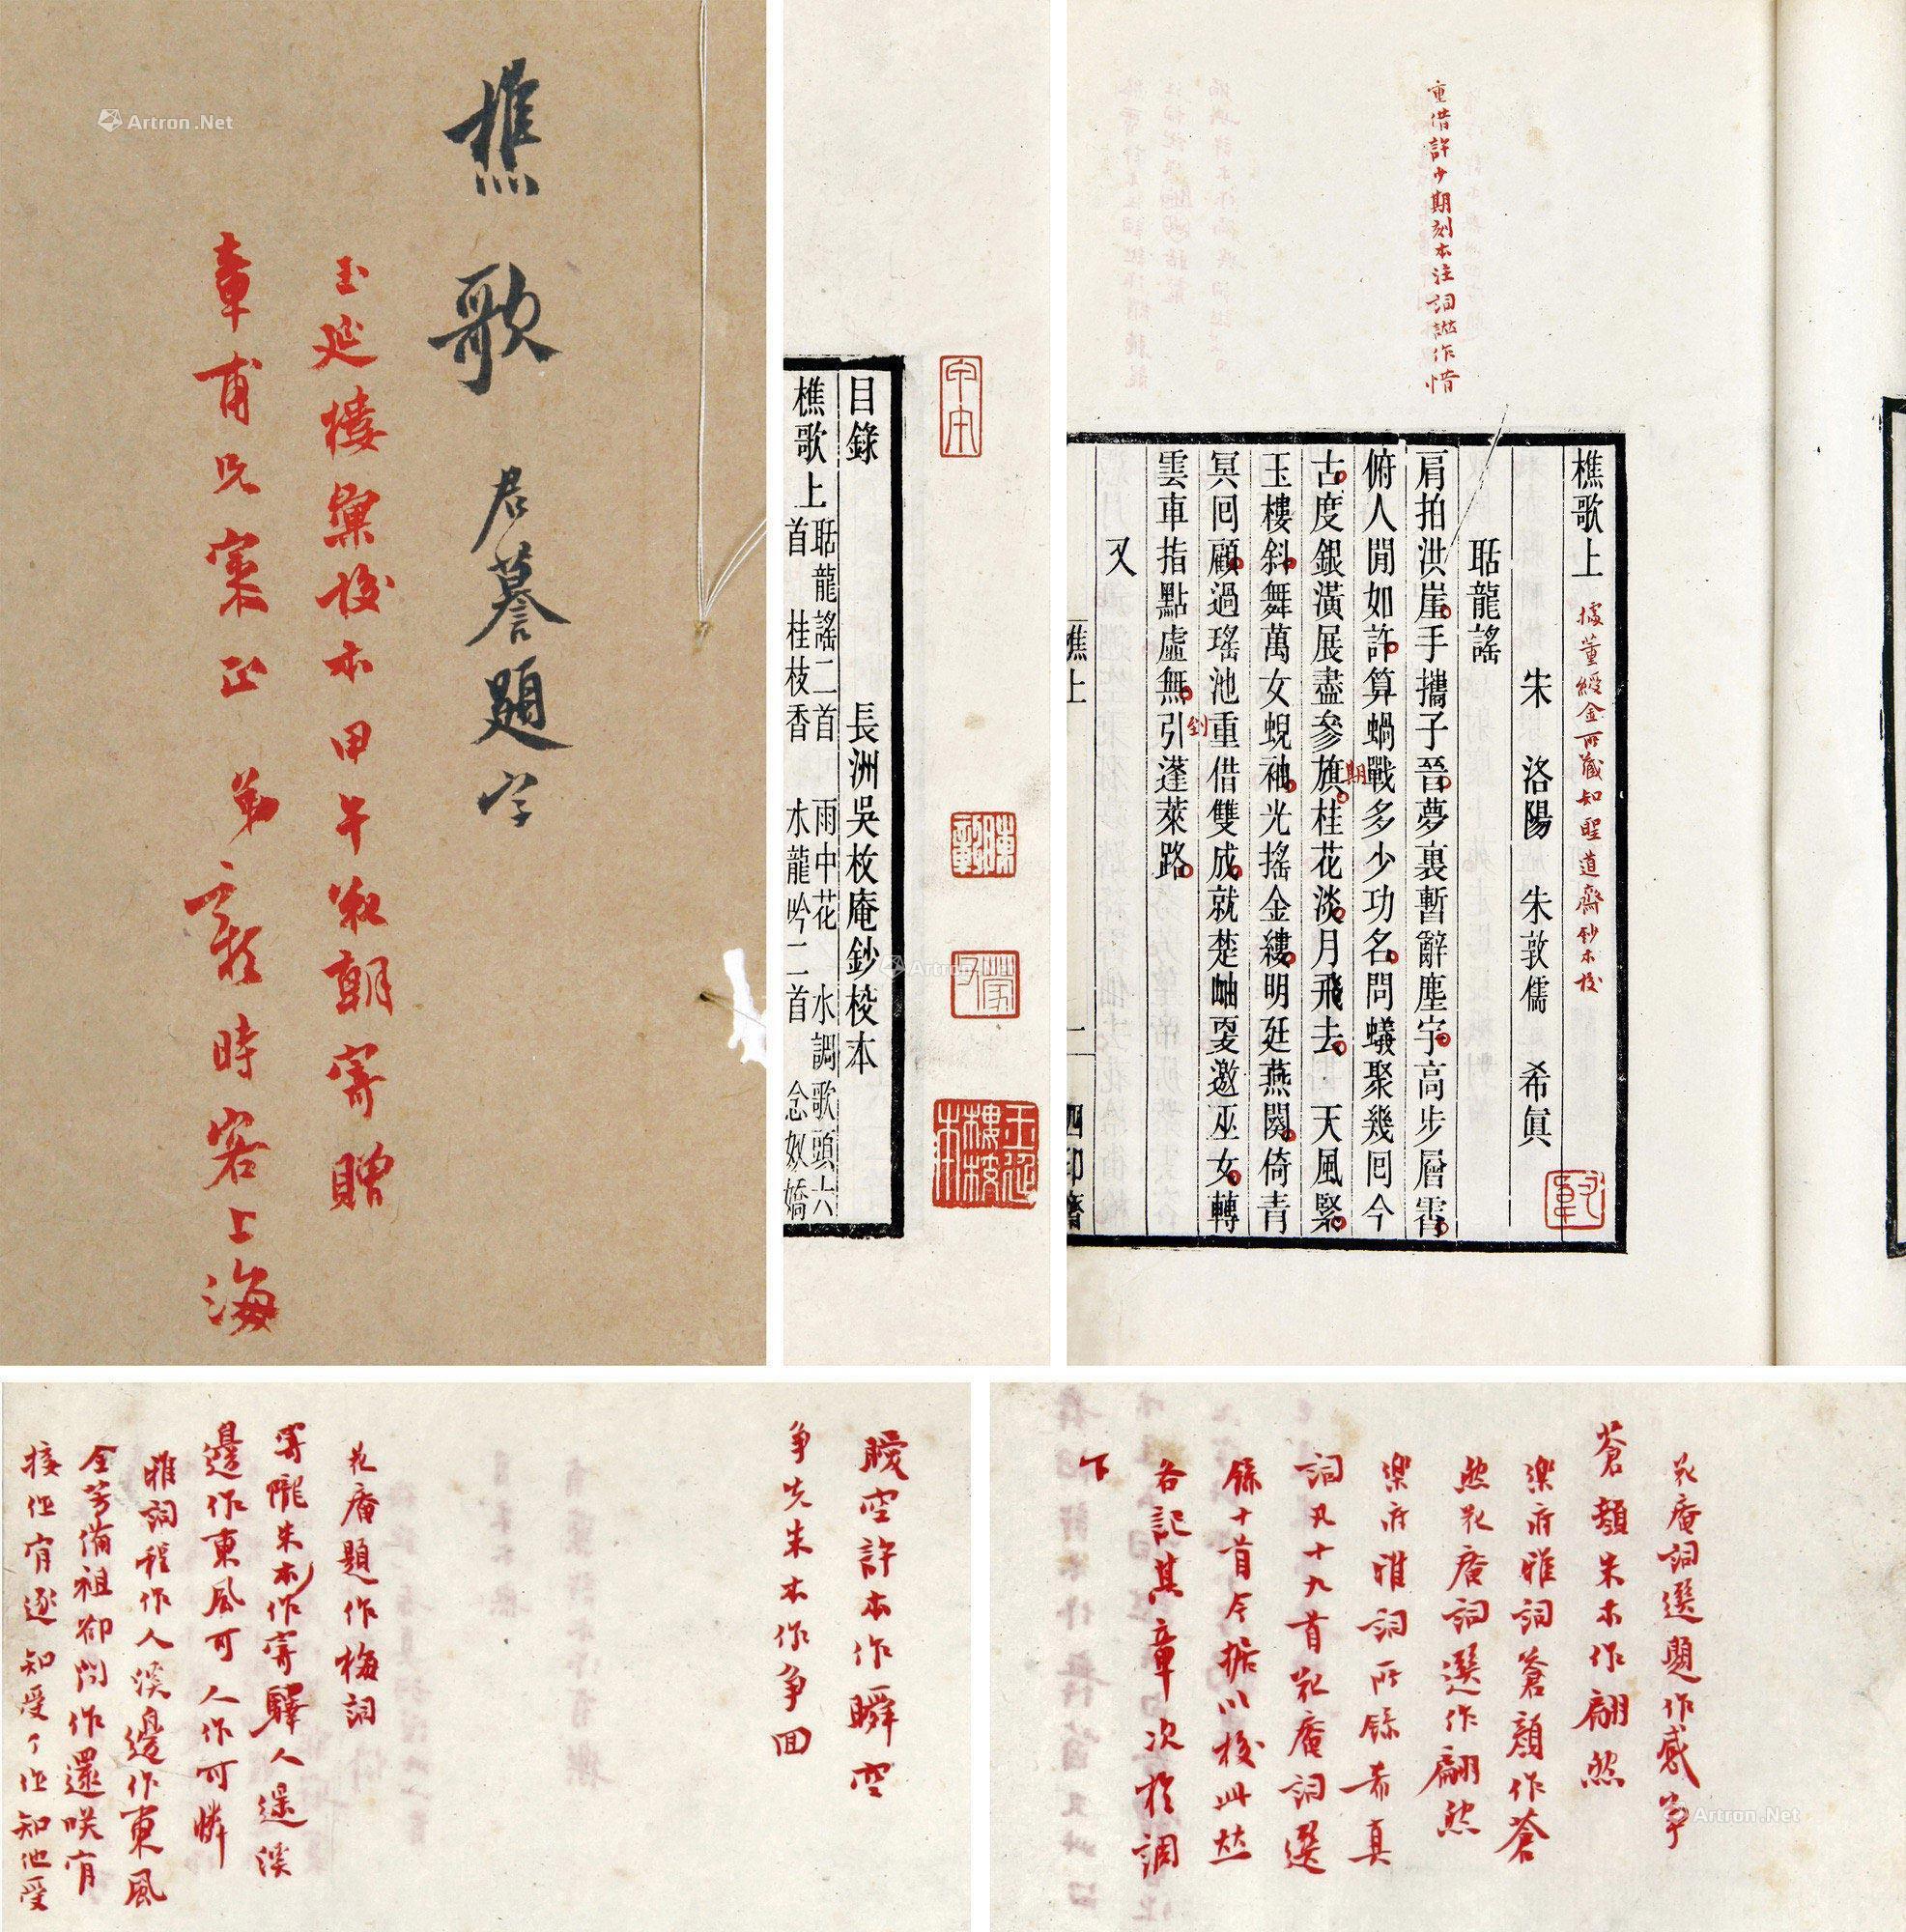 樵歌 君謩題字
玉延樓彙校本甲午花朝寄贈
章甫兄案正 弟 時客上海
Artron.Net
目錄 長洲吳枚庵鈔校本
樵歌上 聒龍謠二首 雨中花 水調歌頭六
首 桂枝香 水龍吟二首 念奴嬌
玉延樓校本
重借許少期刻本注詞譜作惜
樵歌上 據董綬金所藏知聖道齋鈔本校
朱 洛陽 朱敦儒 希真
聒龍謠
肩拍洪崖手攜子晉夢裏暫辭塵宇高步層霄
俯人閒如許算蝸戰多少功名問蟻聚幾回今
古度銀潢展盡參旗桂花淡月飛去 天風緊
期
玉樓斜舞萬女蜺袖光搖金縷明廷燕闋倚青
冥回顧過瑤池重借雙成就楚岫更邀巫女轉
到
雲車指點虛無引蓬萊路
又
樵上
二
四印齋
Artron.Net
花庵詞選題作感事
蒼顏朱本作翩然
樂府雅詞蒼顏作蒼
然花庵詞選作翩然
樂府雅詞所錄希真
詞凡十九首花庵詞選
錄十首今據以校此并
各記其章次於調
下
Artron.Net
瞹空許本作瞬空
爭先朱本作爭回
花庵題作梅詞
寄隴朱本作寄驛人遥溪
邊作東風可人作可憐
雅詞程作人溪邊作東風
全芳備祖卻問作還咲宵
接作宵逐知受了作知他受